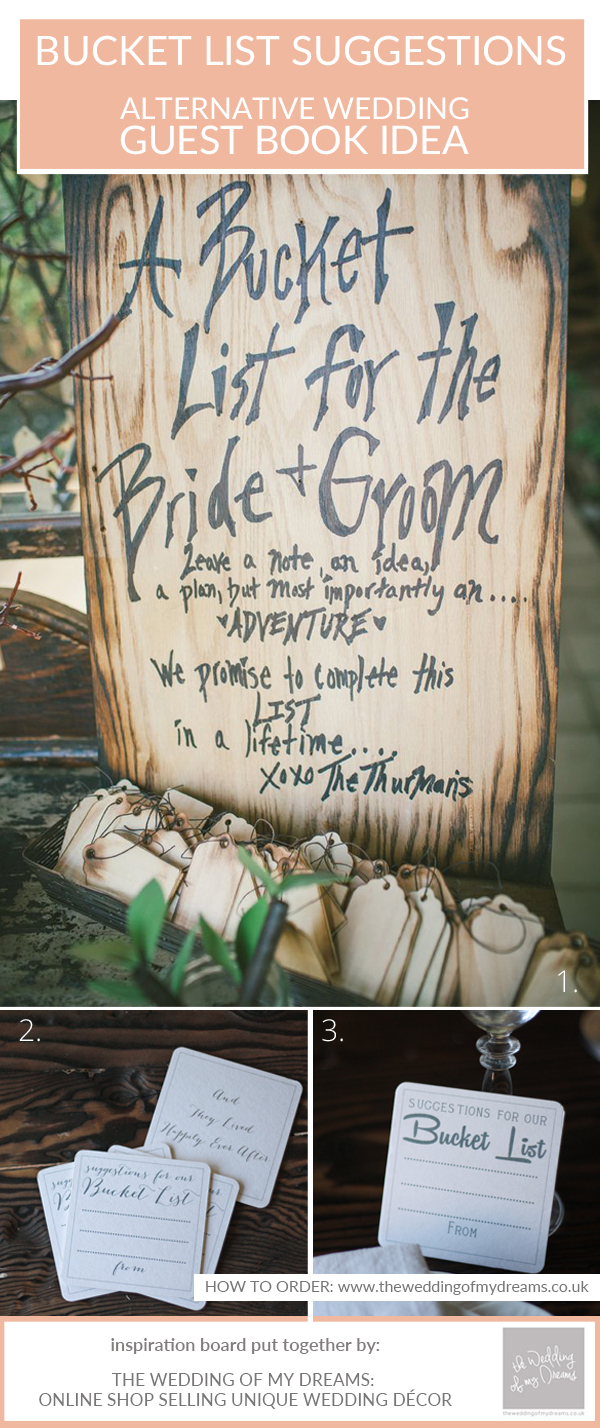 BUCKET LIST SUGGESTIONS
ALTERNATIVE WEDDING
GUEST BOOK IDEA
A Bucket
List for the
Bride + Groom
Leave a note, an idea,
a plan, but most importantly an....
♥ADVENTURE♥
We promise to complete this
LIST
in a lifetime....
XOXO The Thurmans
1.
2.
And
They Lived
Happily Ever After
suggestions for our
Bucket List
from
3.
SUGGESTIONS FOR OUR
Bucket List
FROM
HOW TO ORDER: www.theweddingofmydreams.co.uk
inspiration board put together by:
THE WEDDING OF MY DREAMS:
ONLINE SHOP SELLING UNIQUE WEDDING DÉCOR
the Wedding
of my Dreams
theweddingofmydreams.co.uk